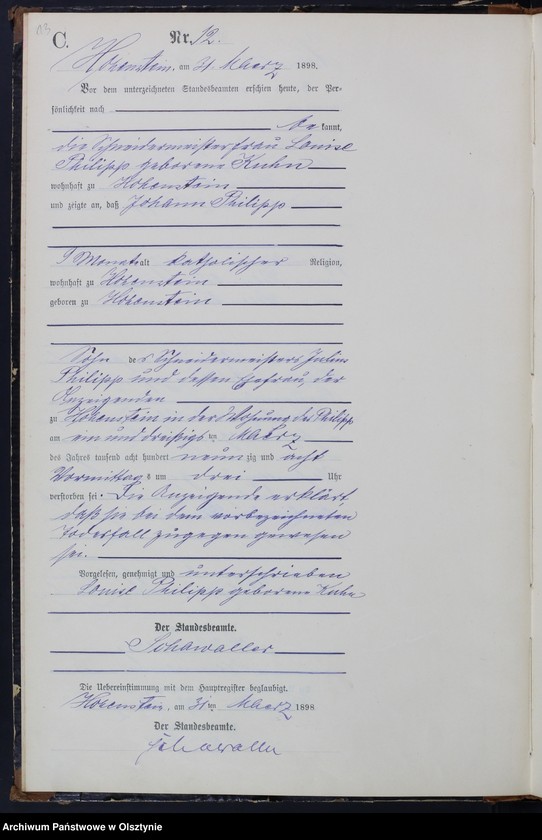 113
C.
Nr. 12.
Hohenstein, am 31. Maerz 1898.
Vor dem unterzeichneten Standesbeamten erschien heute, der Per-
sönlichkeit nach
be kannt,
die Schneidermeisterfrau Louise
Philipp geborene Kuhn
wohnhaft zu Hohenstein
und zeigte an, daß Johann Philipp
Monate alt katholischer Religion,
wohnhaft zu Hohenstein
geboren zu Hohenstein
Sohn des Schneidermeisters Julius
Philipp und dessen Ehefrau, der
Anzeigenden
zu Hohenstein in der Wohnung des Philipp
am ein und dreißigsten Maerz
des Jahres tausend acht hundert neunzig und acht
Vormittags um drei Uhr
verstorben sei. Die Anzeigende erklärt,
daß sie bei dem vorbezeichneten
Todesfall zugegen gewesen
sei.
Vorgelesen, genehmigt und unterschrieben
Louise Philipp geborene Kuhn
Der Standesbeamte.
Schawaller
Die Uebereinstimmung mit dem Hauptregister beglaubigt.
Hohenstein, am 31ten Maerz 1898
Der Standesbeamte.
Schawaller
Archiwum Państwowe w Olsztynie